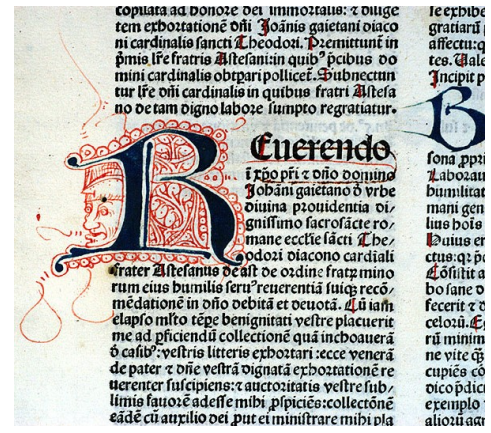 copulata ad honore dei immortalis: ⁊ dilige
tem exhortationē dñi Joānis gaietani diaco
ni cardinalis sancti Theodori. Premittunt̄ in
p̄mis lr̄e fratris Astesani: in quibꝰ p̄cibus do
mini cardinalis obtꝑari pollicet̄. Subnectun
tur lr̄e dñi cardinalis in quibus fratri Astesa
no de tam digno labore sumpto regratiatur.
Reuerendo
ī xp̄o pr̄i ⁊ dño domino
Johāni gaietano d̄ vrbe
diuina prouidentia di-
gnissimo sacrosācte ro-
mane eccl̄ie sācti The-
odori diacono cardīali
frater Astesanus de ast de ordine fratꝝ mino
rum eius humilis seruꝰ reuerentiā suiqꝫ recō-
mēdationē in dño debitā et deuotā. Cū iam
elapso ml̄to tēpe benignitati vestre placuerit
me ad ꝑficiendū collectionē quā inchoauerā
d̄ casibꝰ: vestris litteris exhortari: ecce venerā
de pater ⁊ dñe vestrā dignatā exhortationē re
uerenter suscipiens: ⁊ auctoritatis vestre sub-
limis fauorē adesse mihi ꝓspiciēs: collectōnē
eādē cū auxilio dei ꝓut ei ministrare mihi pla
le exhibe
gratiarū
affectu: q
tes. Vale
Incipit p
B
sona ꝓpri
Laborau
humilitat
mani gen
lius hoīs
Huius er
ctus: qꝛ p̄d
Cōsistit a
bo sane d
fecerit ⁊ d
celorū. Eg
rū minim
ne vite q̄
cupiēs cō
dico p̄dict
exemplo v
aliorū agr